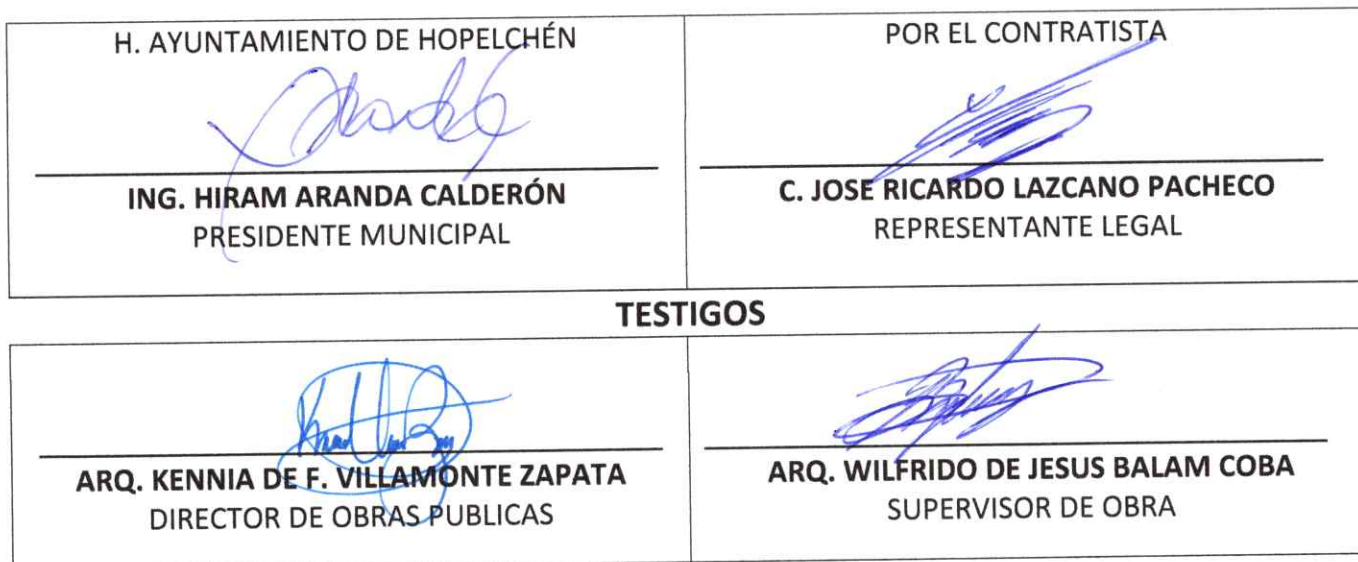 H. AYUNTAMIENTO DE HOPELCHÉN
ING. HIRAM ARANDA CALDERÓN
PRESIDENTE MUNICIPAL
POR EL CONTRATISTA
C. JOSE RICARDO LAZCANO PACHECO
REPRESENTANTE LEGAL
TESTIGOS
ARQ. KENNIA DE F. VILLAMONTE ZAPATA
DIRECTOR DE OBRAS PUBLICAS
ARQ. WILFRIDO DE JESUS BALAM COBA
SUPERVISOR DE OBRA